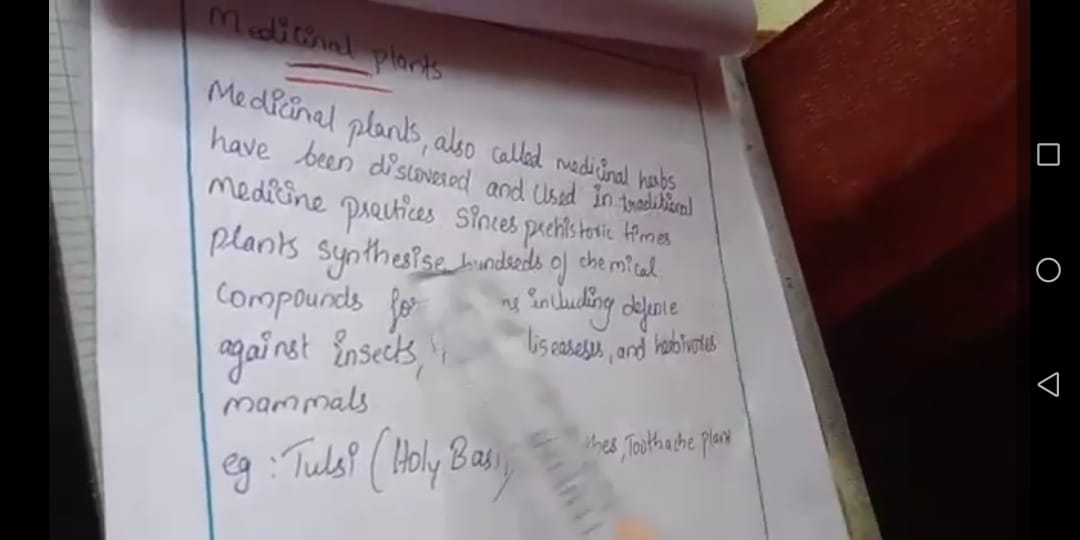 Medicinal plants
Medicinal plants, also called medicinal herbs
have been discovered and used in traditional
medicine practices sinces prehistoric times
plants synthesise hundreds of chemical
compounds for including defence
against insects, and herbivores
mammals
eg : Tulsi (Holy Toothache plant